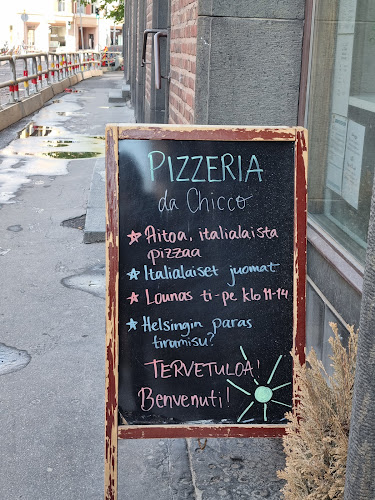 PIZZERIA
da Chicco
Aitoa, italialaista
pizzaa
Italialaiset juomat
Lounas ti-pe klo 11-14
Helsingin paras
tiramisu?
TERVETULOA!
Benvenuti!